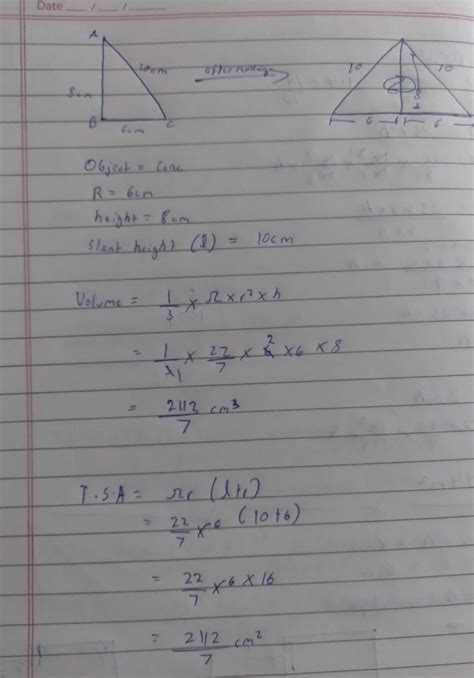 Date / /
A
10cm after rolling 10 10
8cm 8
B 6cm C 6 6
Object = Cone
R = 6cm
height = 8cm
Slant height (l) = 10cm
Volume = 1/3 × π × r² × h
= 1/3̶ 1 × 22/7 × 6̶ 2 × 6 × 8
= 2112/7 cm³
T.S.A = πr (l+r)
= 22/7 × 6 (10+6)
= 22/7 × 6 × 16
= 2112/7 cm²